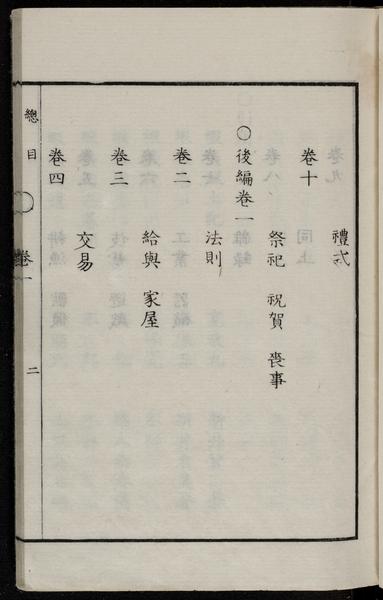 禮式
卷十
祭祀 祝賀 喪事
○後編卷一
法則
卷二
給與 家屋
卷三
交易
卷四
總目
卷一
二